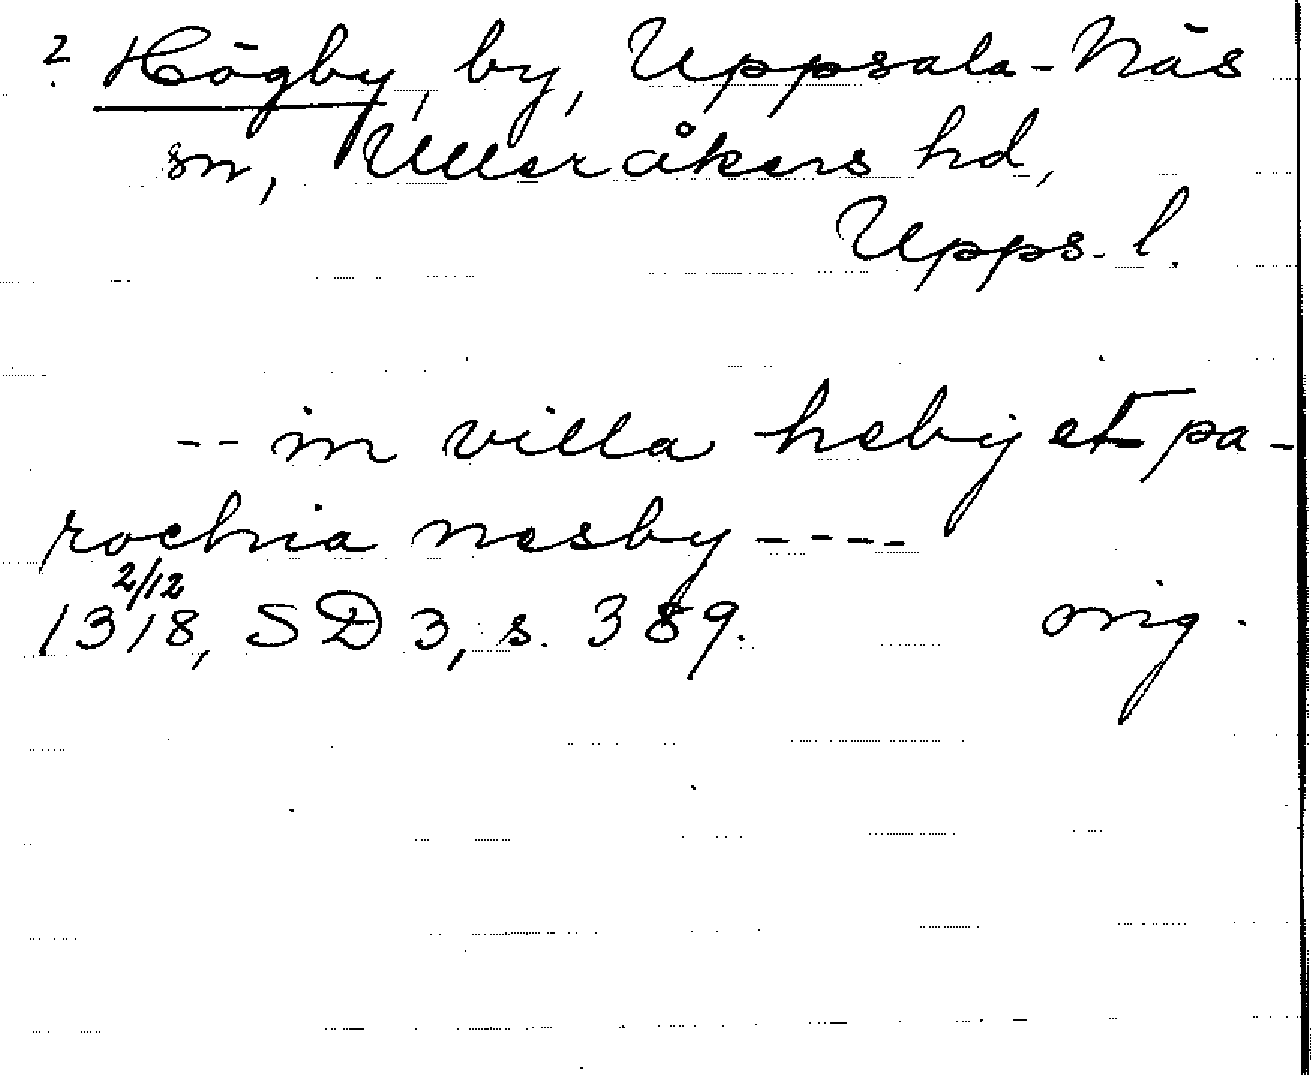 ? Högby, by, Uppsala-Näs
sn, Ulleråkers hd,
Upps. l.
-- in villa hebij et pa-
rochia nesby ----
2/12
1318, SD 3, s. 389. orig.